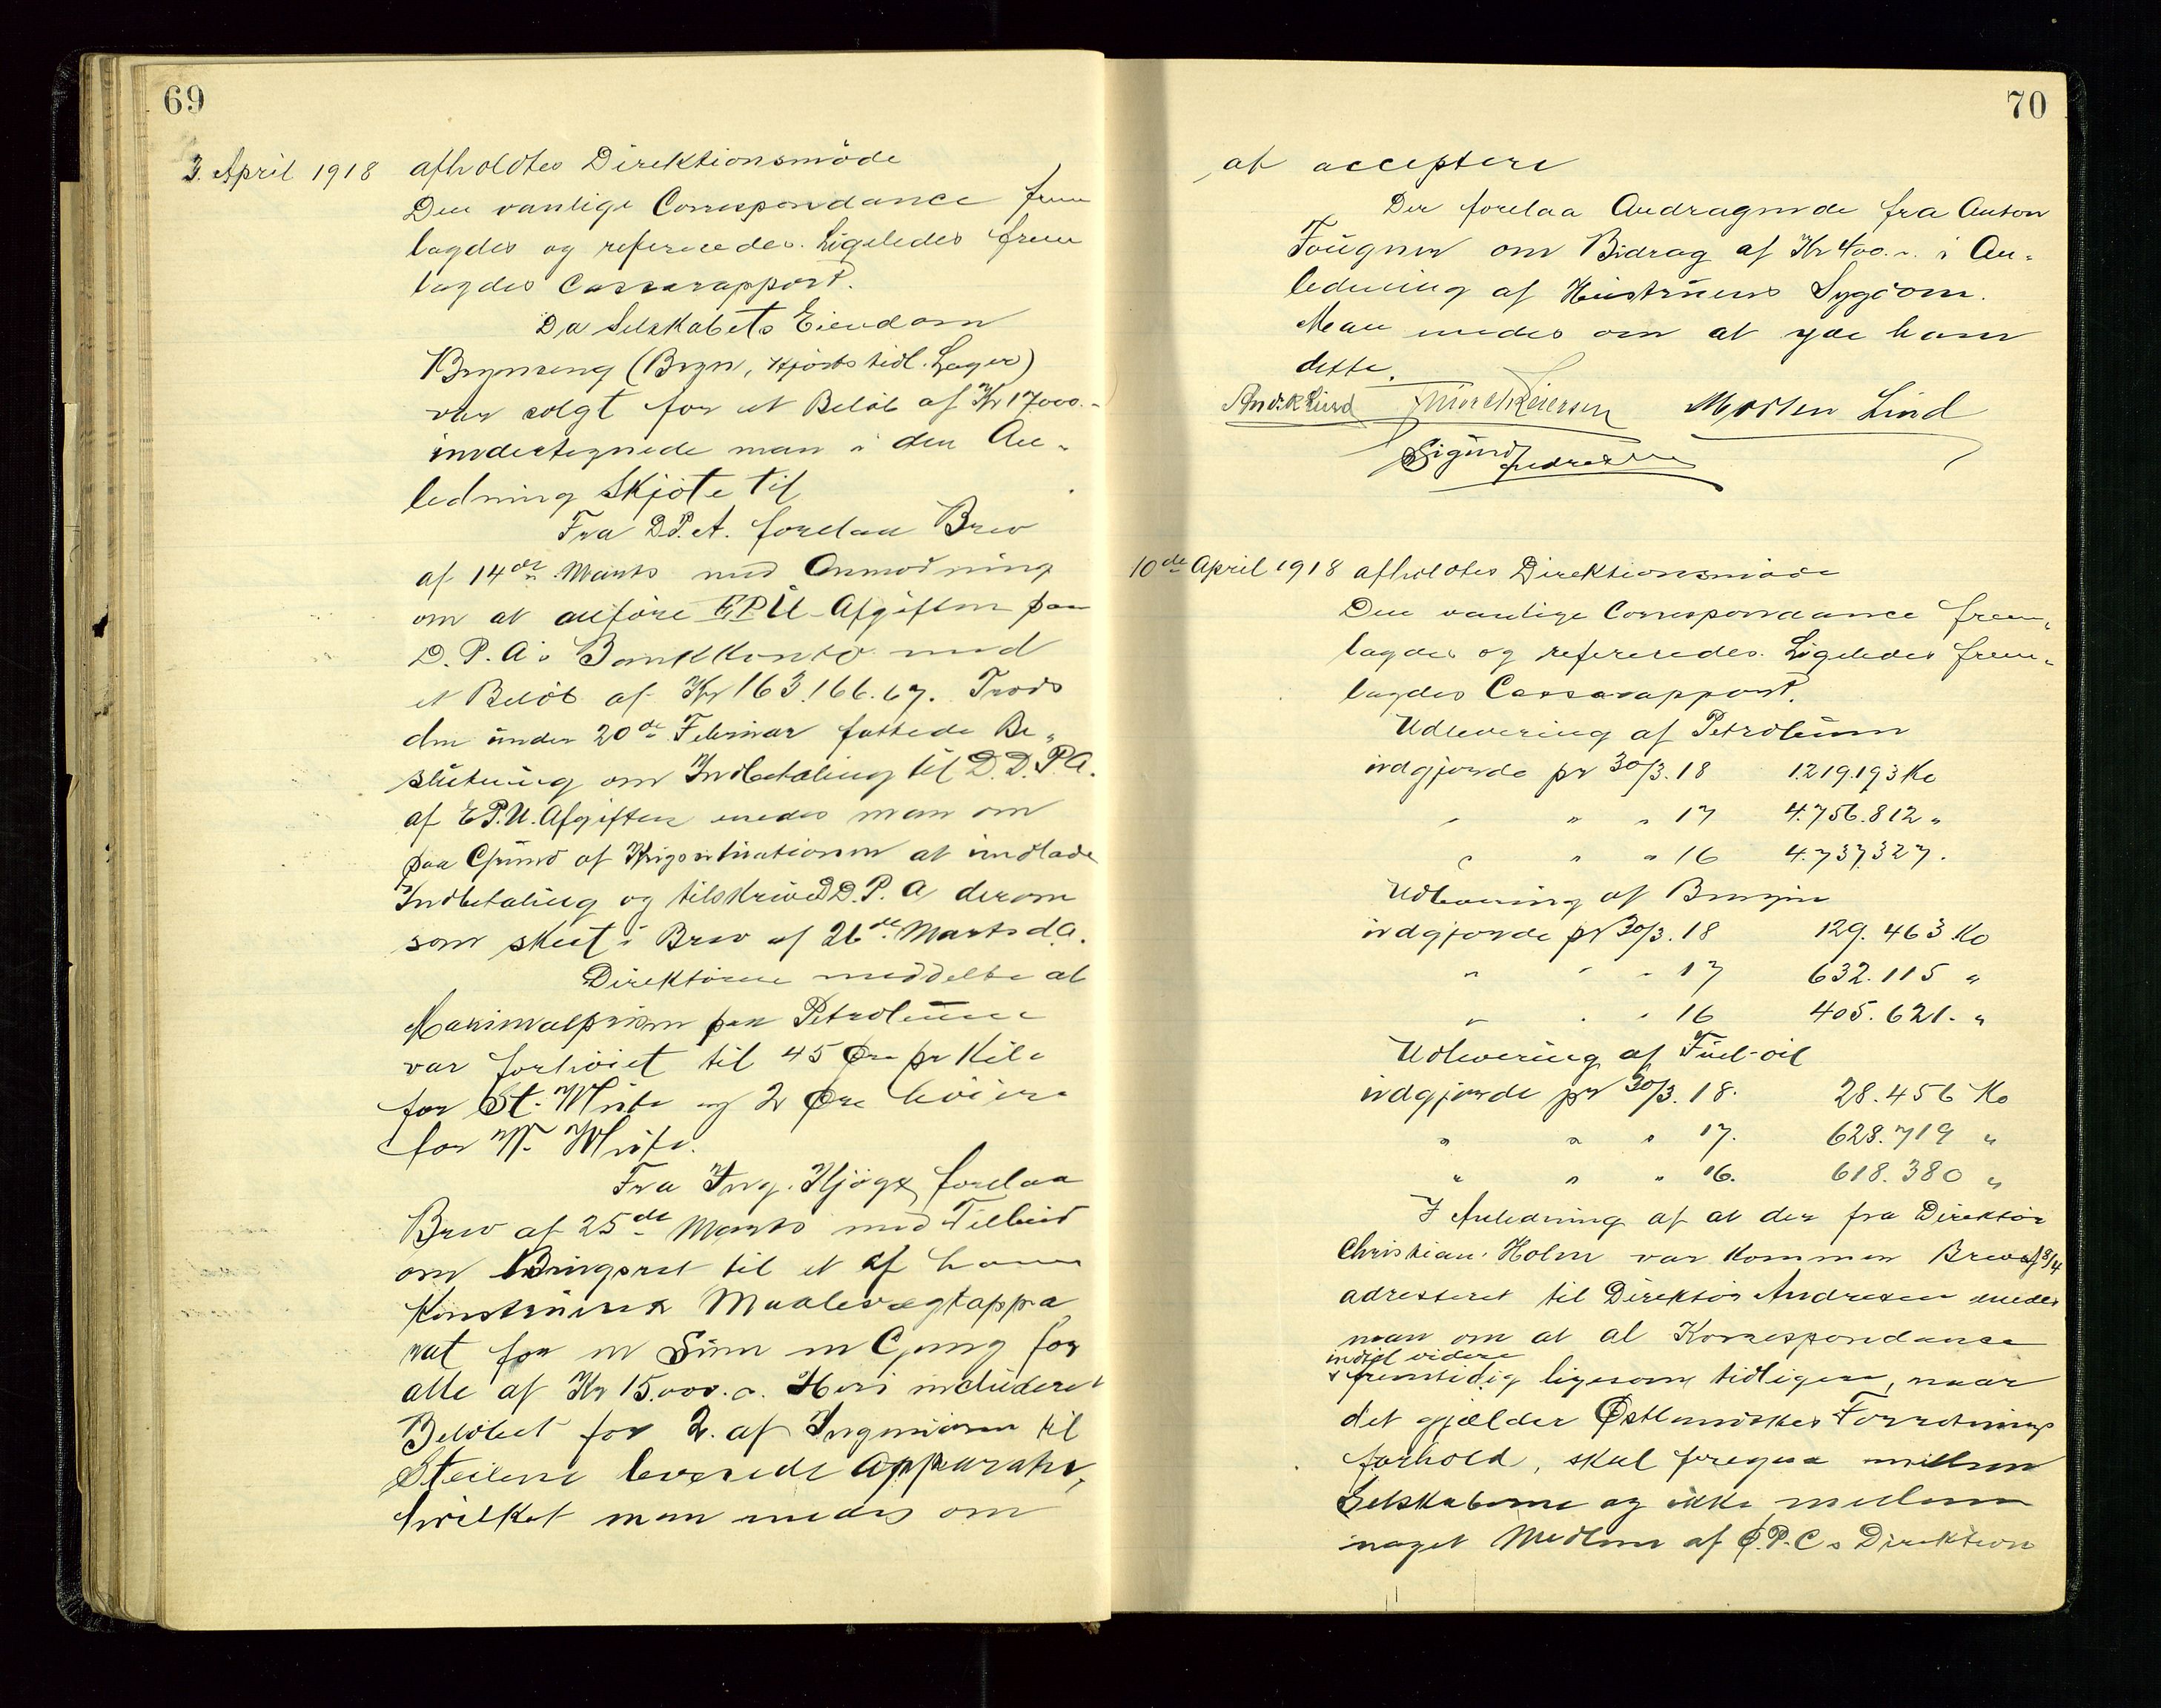 69
3. April 1918 afholdtes Direktionsmöde
Den vanlige Correspondance frem
lagdes og refereredes. Ligeledes frem
lagdes Cassarapport.
Da Selskabets Eiendom
Brynseng (Bryn, Hjorts tidl. Lager)
var solgt for et Belöb af Kr 17000.-
undertegnede man i den An-
ledning Skjöte til
Fra D.P.A. forelaa Brev
af 14de Marts med Anmodning
om at anföre E.P.U. Afgiften paa
D.P.A's Bankkonto med
et Belöb af Kr 163.166.67. Trods
den under 20de Februar fattede Be-
slutning om Indbetaling til D.D.P.A.
af E.P.U. Afgiften enedes man om
paa Grund af Krigssituationen at undlade
Indbetaling og tilskrive D.D.P.A derom
som skeet i Brev af 26de Marts d.A.
Direktörene meddelte at
Maximalprisen paa Petroleum
var forhöiet til 45 Öre pr Kilo
for St. White og 2 Öre höiere
for W. White.
Fra Ing. forelaa
Brev af 25de Marts med Tilbud
om Brugsret til et af ham
Konstrueret Maalevægtappa
rat for en Sum en Gang for
alle af Kr 15.000.-. Heri inkluderet
Belöbet for 2 af Ingeniören til
Steilene leverede Apparater,
hvilket man enedes om
70
at acceptere
Der forelaa Andragende fra Anton
Fougner om Bidrag af Kr 400.- i An-
ledning af Hustruens Sygdom.
Man enedes om at yde ham
dette.
Andr. K Lind Morten Lind
Sigurd Andresen
10de April 1918 afholdtes Direktionsmöde
Den vanlige Correspondance frem-
lagdes og refereredes. Ligeledes frem-
lagdes Cassarapport.
Udlevering af Petroleum
udgjorde pr 30/3. 18 1.219.193 Ko
" " " 17 4.756.812 "
" " " 16 4.737.327.
Udlevering af Benzin
udgjorde pr 30/3. 18 129.463 Ko
" " " 17 632.115 "
" " " 16 405.621. "
Udlevering af Fuel-oil
udgjorde pr 30/3. 18. 28.456 Ko
" " " 17. 628.719 "
" " " 16. 618.380 "
I Anledning af at der fra Direktör
Christian Holm var kommen Brev af 8/4
adresseret til Direktör Andresen enedes
man om at al Korrespondance
indtil videre
fremtidig ligesom tidligere, naar
det gjælder Östlandskes Forretnings
forhold, skal foregaa mellem
Selskaberne og ikke mellem
noget Medlem af Ö.P.C's Direktion